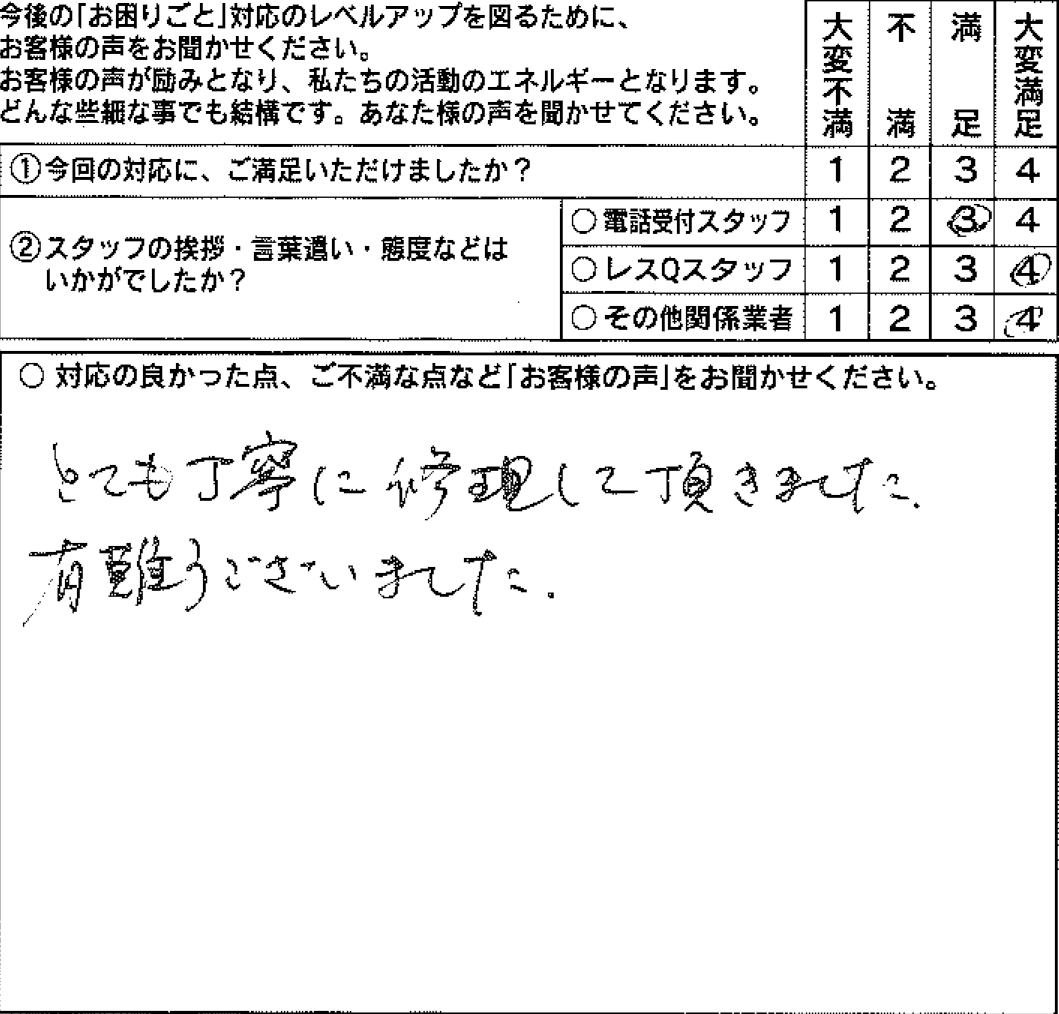 今後の｢お困りごと｣対応のレベルアップを図るために、
お客様の声をお聞かせください。
お客様の声が励みとなり、私たちの活動のエネルギーとなります。
どんな些細な事でも結構です。あなた様の声を聞かせてください。
大変不満 不満 満足 大変満足
①今回の対応に、ご満足いただけましたか？ 1 2 3 4
②スタッフの挨拶・言葉遣い・態度などは
いかがでしたか？
○電話受付スタッフ 1 2 3 4
○レスQスタッフ 1 2 3 4
○その他関係業者 1 2 3 4
○ 対応の良かった点、ご不満な点など｢お客様の声｣をお聞かせください。
とても丁寧に修理して頂きました.
有難うございました.